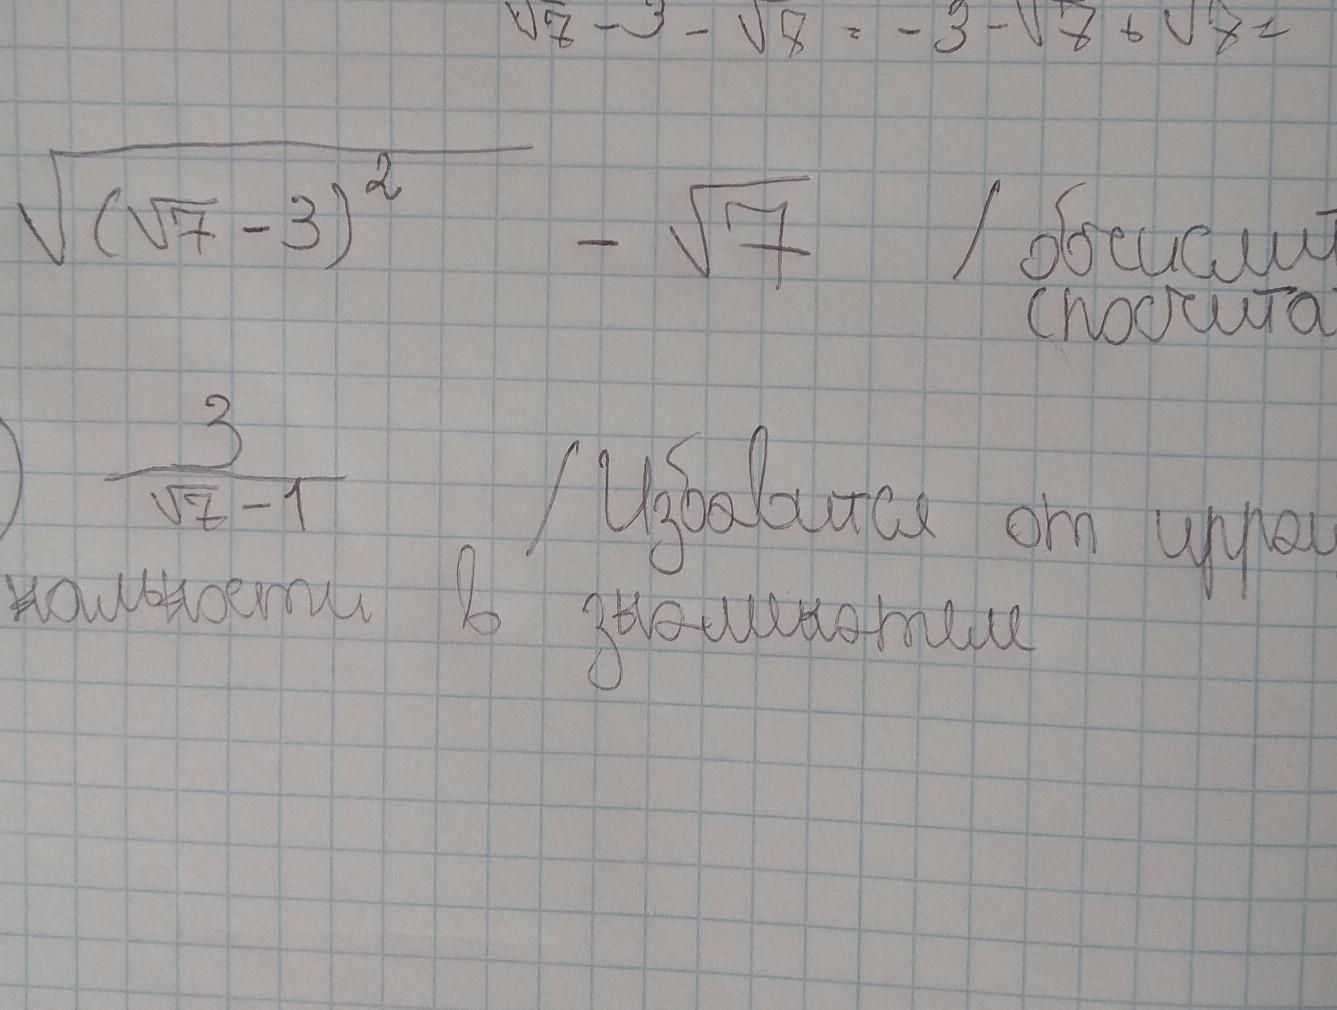 √7 - 3 - √7 = -3 - √7 + √7 =
√(√7 - 3)² - √7 / обчислит
спосчита
) 3/(√7 - 1) / Избавится от иррац
нальности в знаменателе